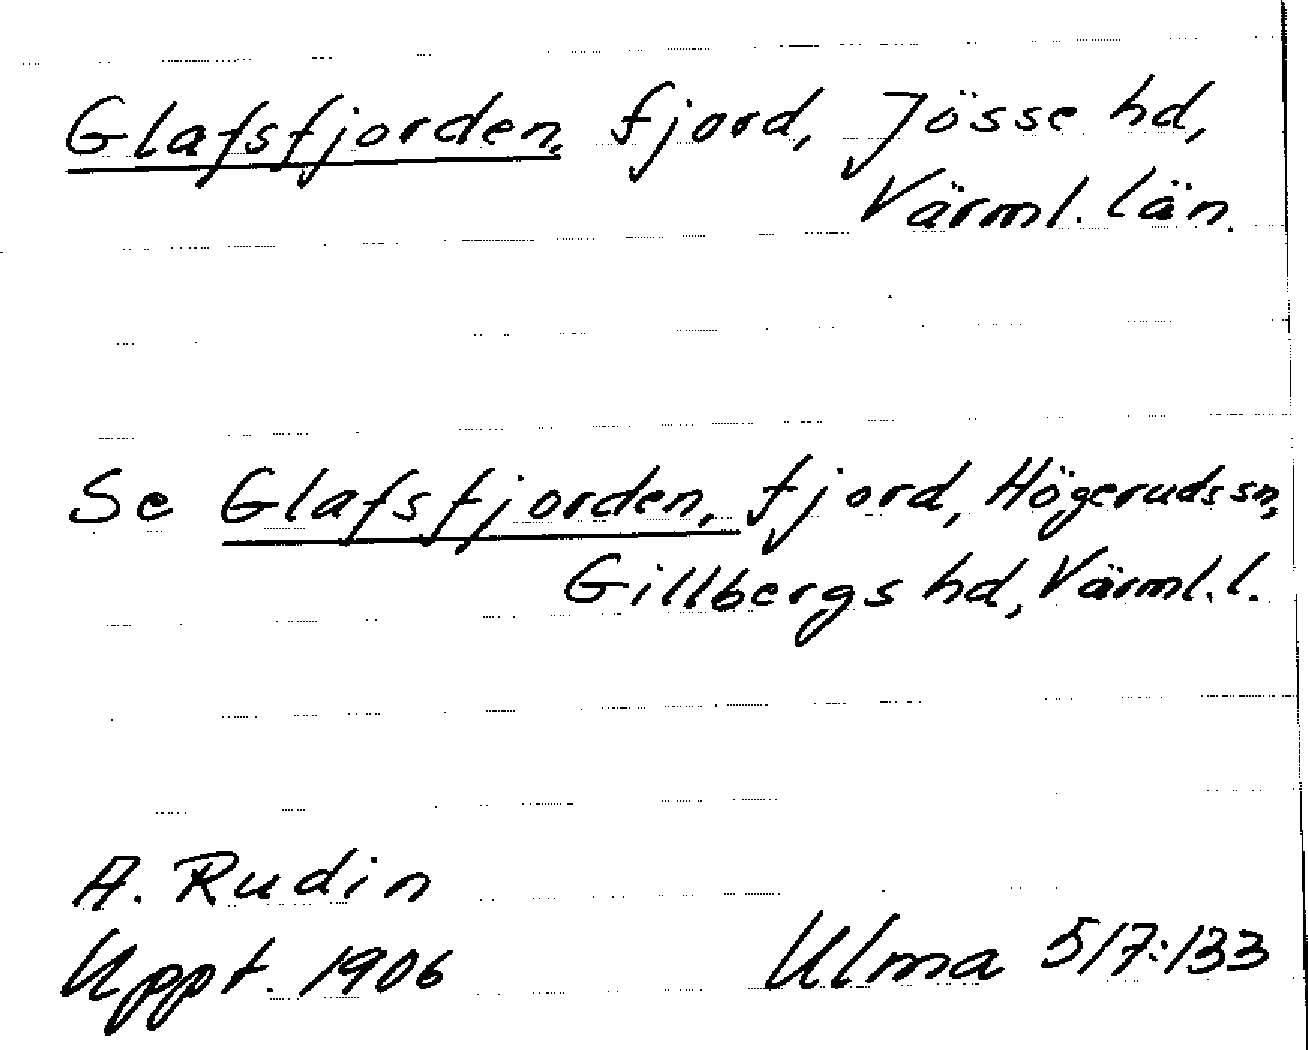 Glafsfjorden, fjord, Jösse hd,
Värml. län.
Se Glafsfjorden, fjord, Högeruds sn,
Gillbergs hd, Värml. l.
A. Rudin
Uppt. 1906
Ulma 517:133